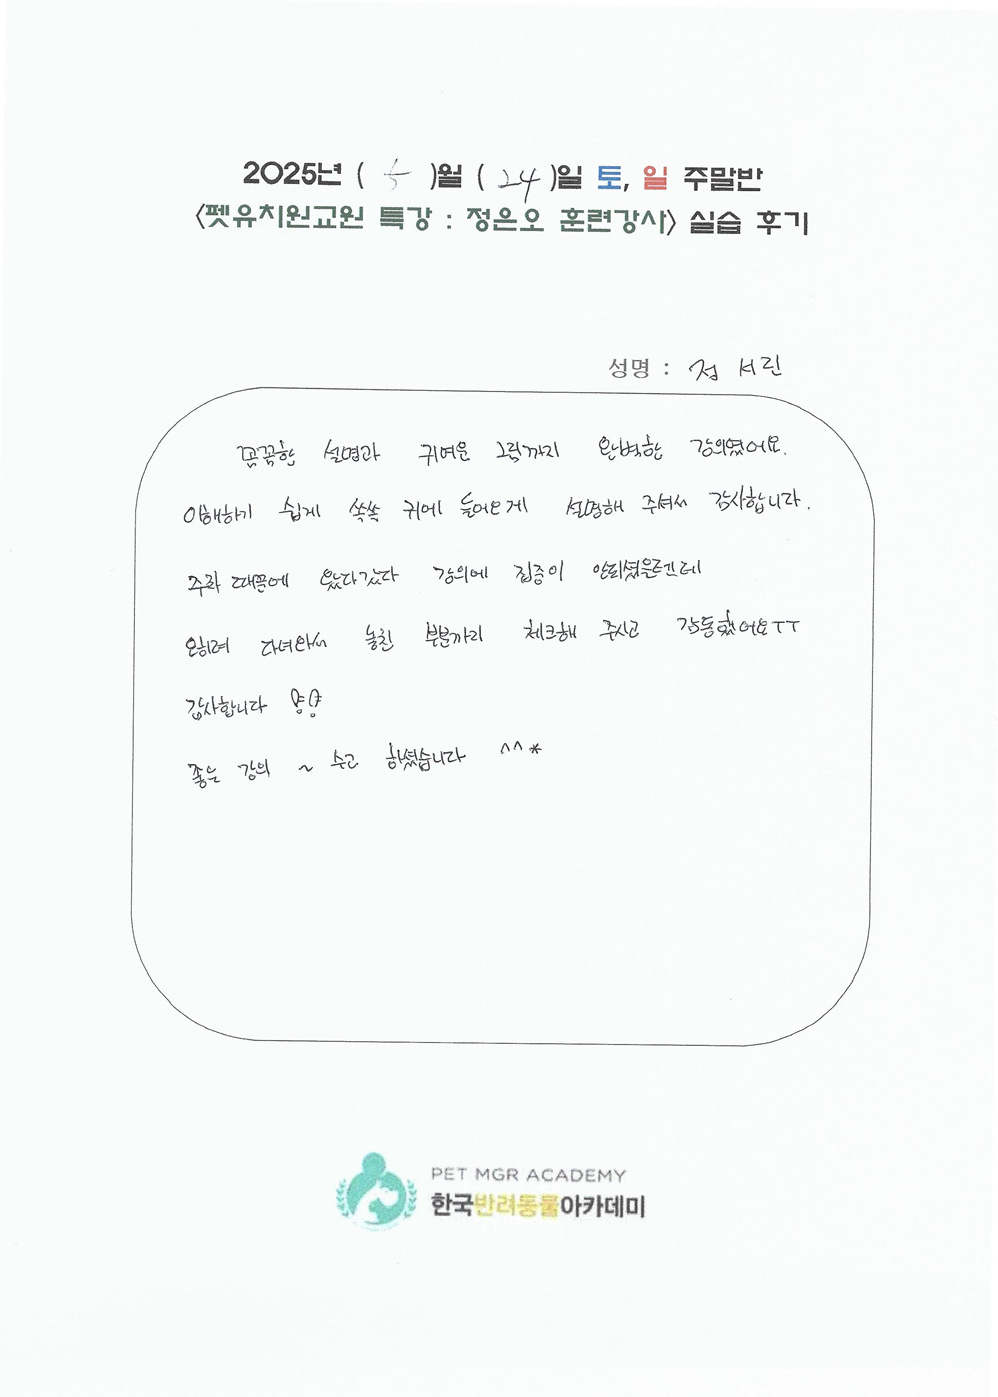 2025년 ( 5 )월 ( 24 )일 토, 일 주말반
<펫유치원교원 특강 : 정은오 훈련강사> 실습 후기
성명 : 정 서린
꼼꼼한 설명과 귀여운 그림까지 완벽한 강의였어요.
이해하기 쉽게 쏙쏙 귀에 들어오게 설명해 주셔서 감사합니다.
주차 때문에 왔다갔다 강의에 집중이 안되셨을텐데
오히려 다녀와서 놓친 부분까지 체크해 주시고 감동했어요ㅜㅜ
감사합니다
좋은 강의 ~ 수고 하셨습니다 ^^*
PET MGR ACADEMY
한국반려동물아카데미